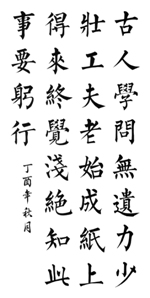 古人學問無遺力少
壯工夫老始成紙上
得來終覺淺絕知此
事要躬行
丁酉年秋月